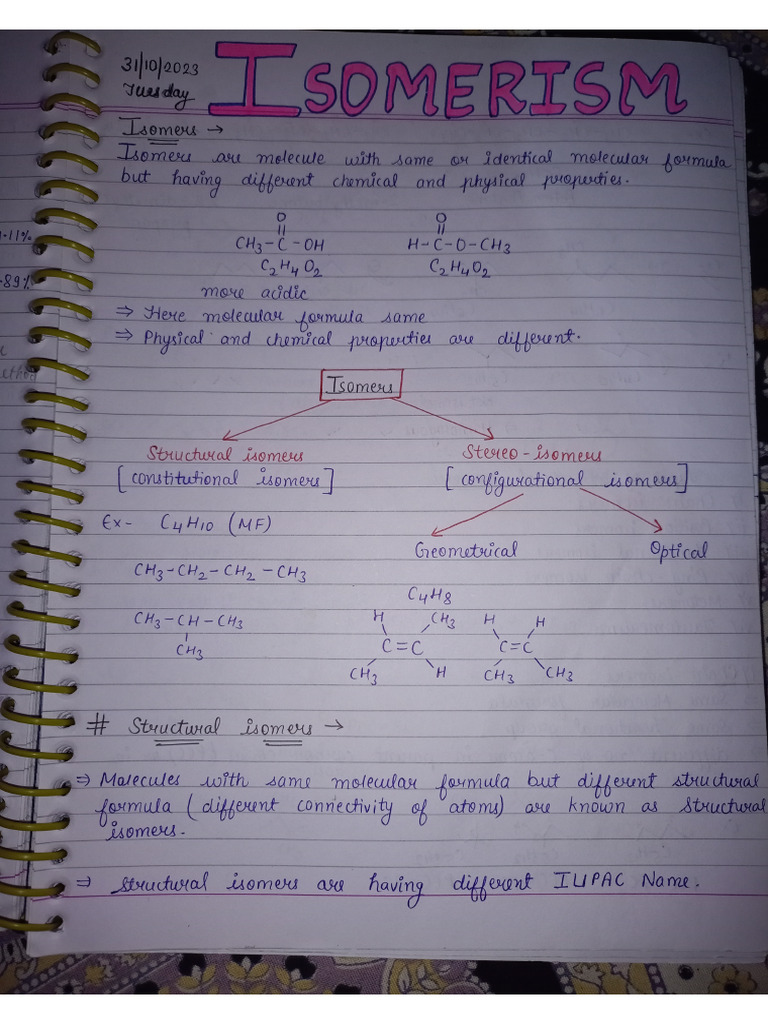 31/10/2023
Tuesday
ISOMERISM
Isomers →
Isomers are molecule with same or identical molecular formula
but having different chemical and physical properties.
O O
|| ||
CH3-C-OH H-C-O-CH3
C2H4O2 C2H4O2
more acidic
⇒ Here molecular formula same
⇒ Physical and chemical properties are different.
Isomers
Structural isomers Stereo-isomers
[constitutional isomers] [configurational isomers]
Ex- C4H10 (MF)
Geometrical Optical
CH3-CH2-CH2-CH3
C4H8
CH3-CH-CH3
CH3
H CH3 H H
C=C C=C
CH3 H CH3 CH3
# Structural isomers →
⇒ Molecules with same molecular formula but different structural
formula (different connectivity of atoms) are known as structural
isomers.
⇒ structural isomers are having different IUPAC Name.
1.11%
89%